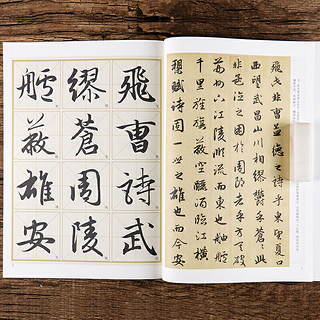 飛此非曹孟德之詩乎東望夏口
西望武昌山川相繆鬱乎蒼〻此
非孟德之困於周郎者乎方其破
荊州下江陵順流而東也舳艫
千里旌旗蔽空釃酒臨江橫
槊賦詩固一世之雄也而今安
飛曹詩武
繆蒼周陵
艫蔽雄安